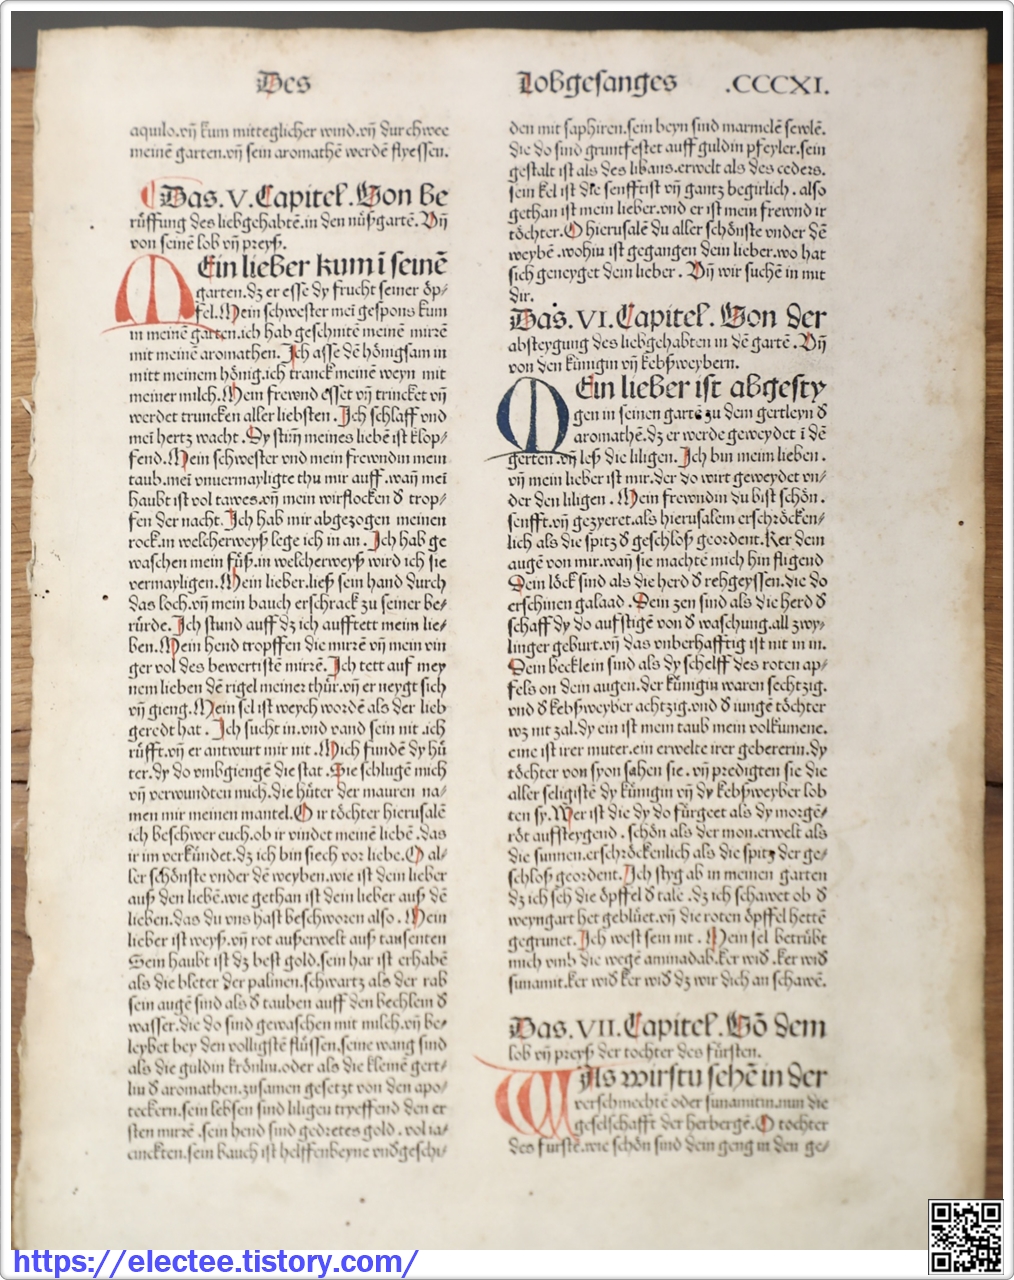 Des
Lobgesanges .CCCXI.
aquilo.vñ kum mitteglicher wind.vñ durchwee
meinẽ garten.vñ sein aromathẽ werdẽ flyessen.
Das.V.Capitel.Von Be
rüffung des liebgehabtẽ.in den nůßgartẽ.Vñ
von seinẽ lob vñ preyß.
MEin lieber kum ĩ seinẽ
garten.dz er esse dy frucht seiner öp⸗
fel.Mein schwester meĩ gespons kum
in meinẽ garten.ich hab geschnitẽ meinẽ mirrẽ
mit meinẽ aromathen.Ich asse dẽ hönigsam in
mitt meinem hönig.ich tranck meinẽ weyn mit
meiner milch.Mein frewnd esset vñ trincket vñ
werdet truncken aller liebsten.Ich schlaff vnd
meĩ hertz wacht.Dy stim̃ meines liebẽ ist klop⸗
fend.Mein schwester vnd mein frewndin mein
taub.meĩ vnuermayligte thu mir auff.wañ meĩ
haubt ist vol tawes.vñ mein wirflocken d̕ trop⸗
fen der nacht.Ich hab mir abgezogen meinen
rock.in welcherweyß lege ich in an.Ich hab ge
waschen mein fůß.in welcherweyß wird ich sie
vermayligen.Mein lieber.ließ sein hand durch
das loch.vñ mein bauch erschrack zu seiner be⸗
rürde.Ich stund auff dz ich aufftett meim lie⸗
ben.Mein hend tropffen die mirrẽ vñ mein vin
ger vol des bewertistẽ mirrẽ.Ich tett auf mey
nem lieben dẽ rigel meiner thür.vñ er neygt sich
vñ gieng.Mein sel ist weych wordẽ als der lieb
geredt hat.Ich sucht in.vnd vand sein nit.ich
růfft.vñ er antwurt mir nit.Mich fundẽ dy hů
ter.dy do vmbgiengẽ die stat.Sie schlugẽ mich
vñ verwundten mich.die hůter der mauren na⸗
men mir meinen mantel.O ir töchter hierusalẽ
ich beschwer euch.ob ir vindet meinẽ liebẽ.das
ir im verkündet.dz ich bin siech vor liebe.O al⸗
ler schönste vnder dẽ weyben.wie ist dem lieber
auß den liebẽ.wie gethan ist dein lieber auß dẽ
lieben.das du vns hast beschworen also.Mein
lieber ist weyß.vñ rot außerwelt auß tausenten
Sein haubt ist dz best gold.sein har ist erhabẽ
als die bleter der palmen.schwartz als der rab
sein augẽ sind als d̕ tauben auff den bechlein d̕
wasser.die do sind gewaschen mit milch.vñ be⸗
leybet bey den volligstẽ flüssen.seine wang sind
als die guldin krönlin.oder als die kleinẽ gert⸗
lin d̕ aromathen.zusamen gesetzt von den apo⸗
teckern.sein lebsen sind liligen tryeffend den er
sten mirrẽ.sein hend sind gedretes gold.vol ia⸗
cinckten.sein bauch ist helffenbeyne vndgeschi⸗
den mit saphiren.sein beyn sind marmelẽ sewlẽ.
die do sind gruntfestet auff guldin pfeyler.sein
gestalt ist als des libans.erwelt als des ceders.
sein kel ist die senfftist vñ gantz begirlich.also
gethan ist mein lieber.vnd er ist mein frewnd ir
töchter.O hierusalẽ du aller schönste vnder dẽ
weybẽ.wohin ist gegangen dein lieber.wo hat
sich geneyget dein lieber.Vñ wir suchẽ in mit
dir.
Das.VI.Capitel.Von der
absteygung des liebgehabten in dẽ gartẽ.Vñ
von den künigin vñ kebßweybern.
MEin lieber ist abgesty
gen in seinen gartẽ zu dem gertleyn d̕
aromathẽ.dz er werde geweydet ĩ dẽ
gerten.vñ leß die liligen.Ich bin meim lieben.
vñ mein lieber ist mir.der do wirt geweydet vn⸗
der den liligen.Mein frewndin du bist schön.
senfft.vñ gezyeret.als hierusalem erschröcken⸗
lich als die spitz d̕ geschloß geordent.Ker dein
augẽ von mir.wañ sie machtẽ mich hin fligend
Dein löck sind als die herd d̕ rehgeyssen.die do
erschinen galaad.Dein zen sind als die herd d̕
schaff dy do aufstigẽ von d̕ waschung.all zwy⸗
linger geburt.vñ das vnberhafftig ist nit in in.
Dein becklein sind als dy schelff des roten ap⸗
fels on dein augen.der künigin waren sechtzig.
vnd d̕ kebßweyber achtzig.vnd d̕ iungẽ töchter
wz nit zal.dy ein ist mein taub mein volkumene.
eine ist irer muter.ein erwelte irer gebererin.dy
töchter von syon sahen sie.vñ predigten sie die
aller seligistẽ dy künigin vñ dy kebßweyber lob
ten sy.Wer ist die dy do fürgeet als dy morgẽ⸗
röt auffsteygend.schön als der mon.erwelt als
die sunnen.erschröckenlich als die spitz der ge⸗
schloß geordent.Ich styg ab in meinen garten
dz ich seh die öpffel d̕ tale.dz ich schawet ob d̕
weyngart het geblüet.vñ die roten öpffel hettẽ
gegrunet.Ich west sein nit.Mein sel betrübt
mich vmb die wegẽ aminadab.ker wid̕.ker wid̕
sunamit.ker wid̕ ker wid̕ dz wir dich an schawẽ.
Das.VII.Capitel.Võ dem
lob vñ preyß der tochter des fürsten.
WAs wirstu sehẽ in der
verschmechtẽ oder sunamitin.nun die
geselschafft der herbergẽ.O tochter
des furstẽ.wie schön sind dein geng in den ge⸗
https://electee.tistory.com/